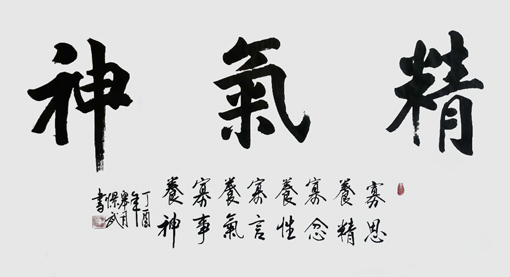 精氣神
寡思
養精
寡念
養性
寡言
養氣
寡事
養神
丁酉
年
月
書